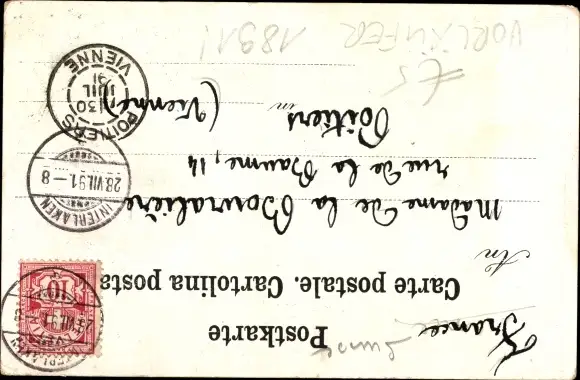 Postkarte
Carte postale. Cartolina posta
An
Madame de la Bouralière
rue de la Baume, 14
Poitiers
in
(Vienne)
France
10
INTERLAKEN
28.VII.91.–8
POITIERS
30
JUIL
91
VIENNE
VORLÄUFER 1891!